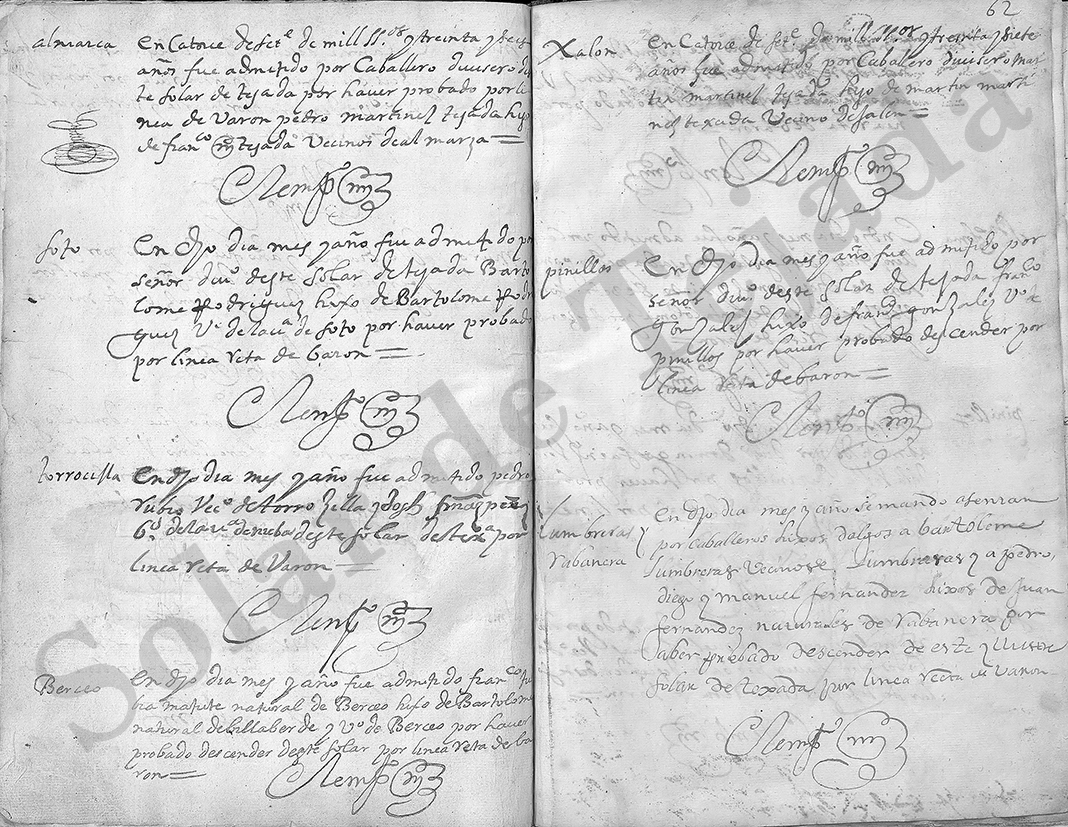 almarca
En Catorce de set.e de mill ss.os y treinta y seis
años fue admitido por Caballero duisero de
te solar de tejada por haver probado por li
nea de Varon pedro martinez tejada hijo
de fran.co m tejada Vecinos de al marza
Clem.te m
soto
En dho dia mes y año fue admitido por
señor diu.o deste solar de tejada Barto
lome Rodriguez hixo de Bartolome Rodri
guez V.o de la v.a de soto por haver probado
por linea reta de baron
Clem.te m
torrocilla
En dho dia mes y año fue admitido pedro
rubio Vec.o de torro zilla y Josh
de la v.a de deste solar de por
linea reta de Varon
Clem.te m
Berceo
En dho dia mes y año fue admitido fran.co
matute natural de Berceo hixo de Bartolome
natural de billaberde y V.o de Berceo por haver
probado descender deste solar por linea reta de ba
ron
Clem.te m
62
Xalon
En Catorce de set.e de mill ss.os y treinta y siete
años fue admitido por Cabalero duisero mar
tin martinez tejada hijo de martin marti
nez texada Vecino de Jalon
Clem.te m
pinillos
En dho dia mes y año fue admitido por
señor diu.o deste solar de tejada fran.co
Gonzalez hixo de fran.co gonzalez V.o de
pinillos por haver probado descender por
linea reta de baron
Clem.te m
Lumbreras y
Rabanera
En dho dia mes y año se mando asentar
por Caballeros hixos dalgos a bartolome
lumbreras Vecino de Lumbreras y a pedro,
diego y manuel fernandez hixos de Juan
fernandez naturales de Rabanera por
aber probado descender de este yllustre
solar de texada por linea recta de Varon
Clem.te m
Solar de Tejada